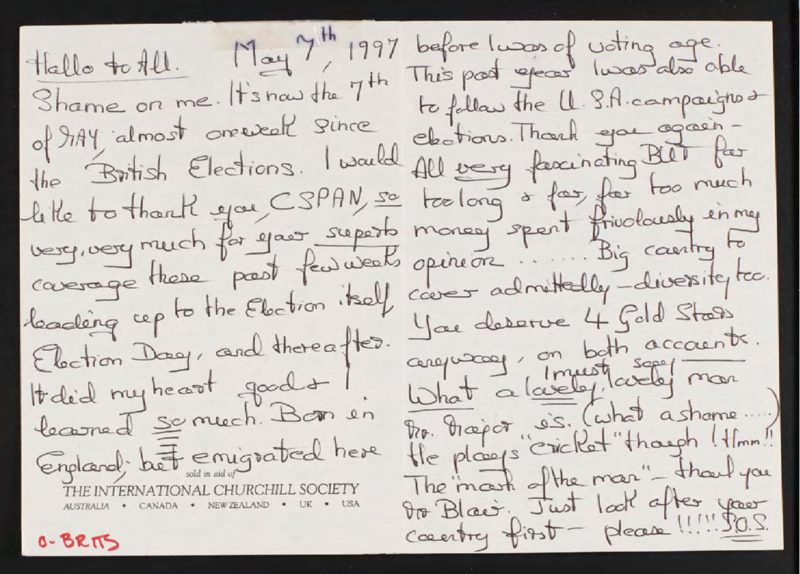 Hallo to All. May 7th, 1997
Shame on me. It's now the 7th
of MAY, almost one week since
the British Elections. I would
like to thank you, CSPAN, so
very, very much for your superb
coverage these past few weeks
leading up to the Election itself
Election Day, and thereafter.
It did my heart good & I
learned so much. Born in
England, but emigrated here
sold in aid of
THE INTERNATIONAL CHURCHILL SOCIETY
AUSTRALIA • CANADA • NEW ZEALAND • UK • USA
O-BRITS
before I was of voting age.
This past year I was also able
to follow the U.S.A. campaigns &
elections. Thank you again -
All very fascinating BUT far
too long & far, far too much
money spent frivolously in my
opinion ....... Big country to
cover admittedly - diversity too.
You deserve 4 Gold Stars
anyway, on both accounts.
I must say
What a lovely, lovely man
Mr. Major is. (What a shame.....)
He plays "cricket" though! Hmm!!
The "mark of the man" - thank you
Mr Blair. Just look after your
country first - please!!!!! S.O.S.